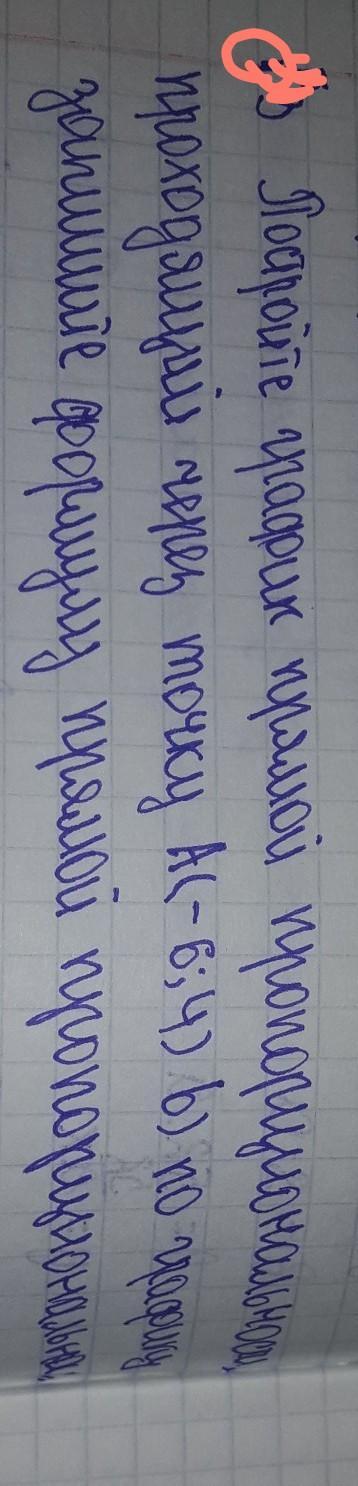 Постройте график прямой пропорциональнос
проходящий через точку А(-6;4) б) по графику
запишите формулу прямой пропорциональнос